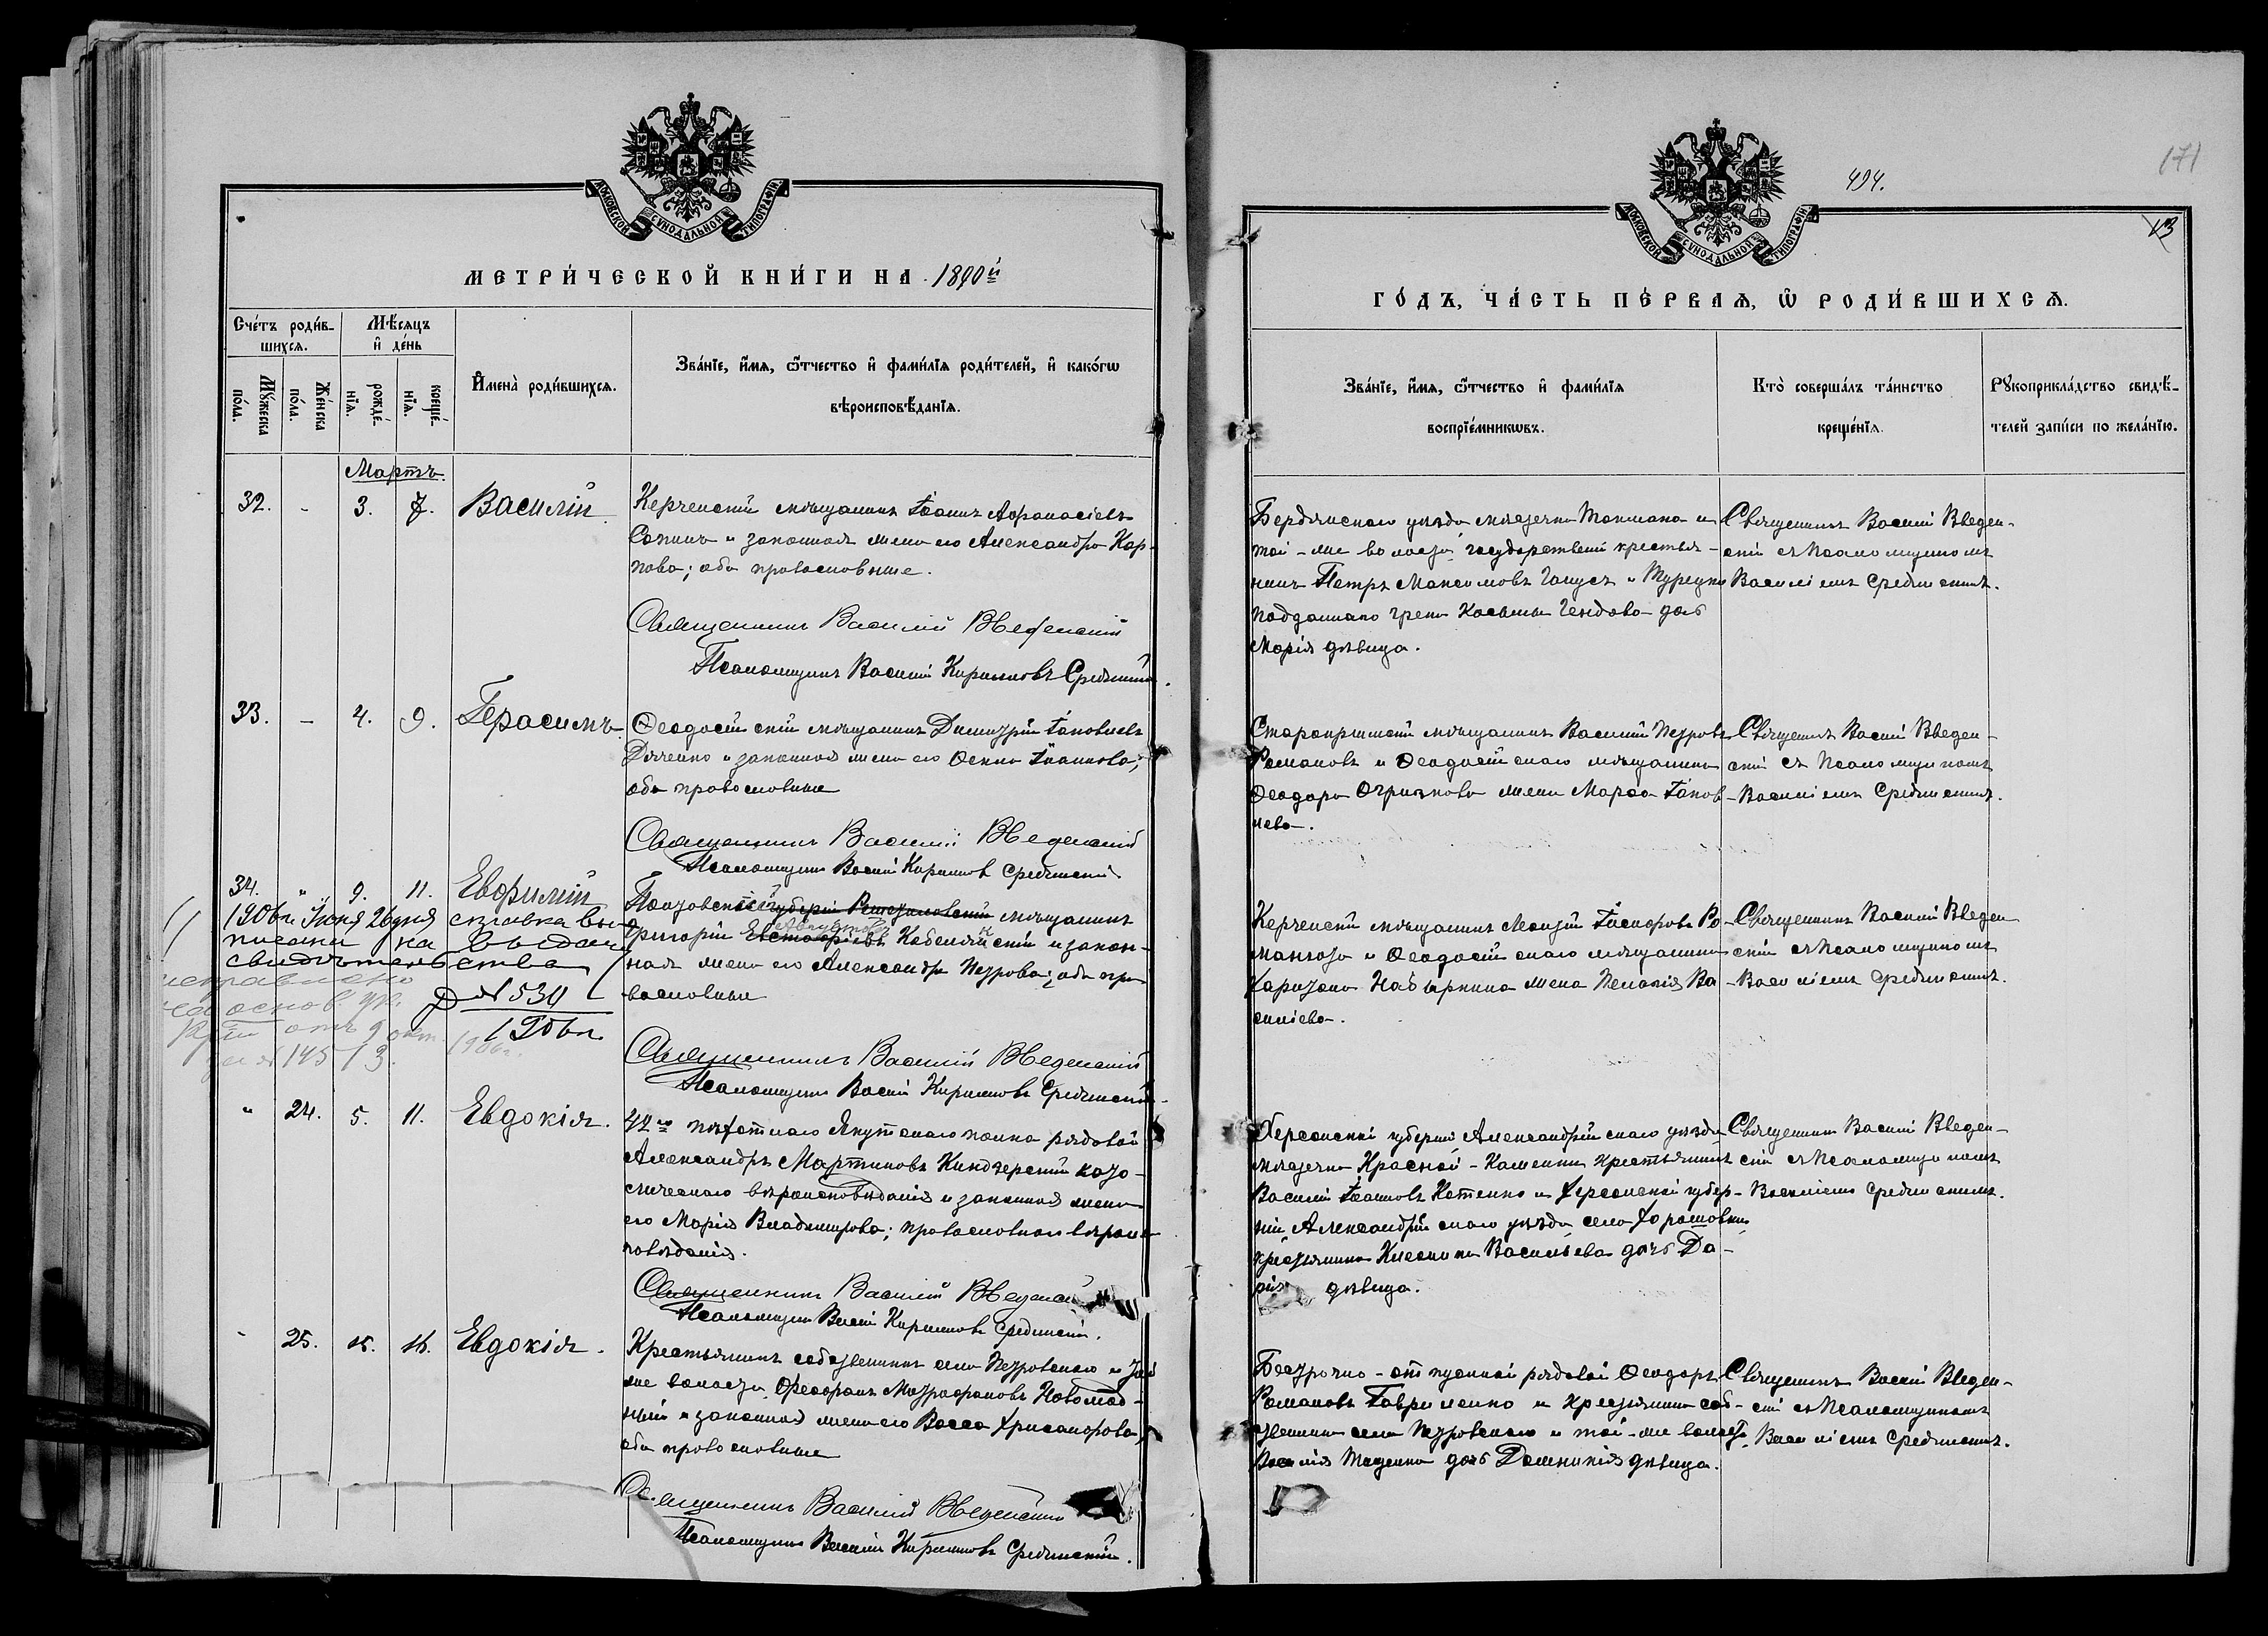 МОСКОВСКОЙ СѴНОДАЛЬНОЙ ТИПОГРАФІИ
МЕТРИ́ЧЕСКОЙ КНИ́ГИ НА 1890й
Сче́тъ роди́в-
шихся.
Мѣ́сяцъ
и҆ де́нь
Мꙋжеска
по́ла.
Же́нска
по́ла.
рожде́-
нїѧ.
креще́-
нїѧ.
И҆мена̀ роди́вшихсѧ.
Зва́нїе, и҆́мѧ, ѻ҆́тчество и҆ фами́лїѧ роди́телей, и҆ како́гѡ
вѣроисповѣ́данїѧ.
Мартъ.
32. - 3. 7. Василій
Керченскій мѣщанинъ Іоаннъ Аѳанасіевъ
и законная жена его Александра Кар-
пова; оба православные.
Священникъ Василій Введенскій
Псаломщикъ Василій Кирилловъ Срединскій.
33. - 4. 9. Герасимъ.
Ѳеодосійскій мѣщанинъ Димитрій Іаковлевъ
Дяченко и законная жена его Ѳекла Іоаннова;
оба православные
Священникъ Василій Введенскій
Псаломщикъ Васілій Кирилловъ Срединскій
34. " 9. 11. Евѳимій
Полтовскій губерніи Решетиловскій мѣщанинъ
Августовъ
Григорій Евстафіевъ Кобелянскій и закон-
ная жена его Александра Петрова; оба пра-
вославные
1906 г. Іюня 26 дня справка вы-
писана на выдачу
свидѣтельства
№ 530
1906 г.
исправлено
на основ. ук.
отъ 9 окт. 1906 г.
за № 14513.
Священникъ Василій Введенскій
Псаломщикъ Василій Кирилловъ Срединскій
" 24. 5. 11. Евдокія.
42го пѣхотнаго Якутскаго полка рядовой
Александръ Мартиновъ Киндзерскій като-
лическаго вѣроисповѣданія и законная жена
его Марія Владимірова; православнаго вѣроис-
повѣданія.
Священникъ Василій Введенскій
Псаломщикъ Василій Кирилловъ Срединскій.
- 25. 15. 16. Евдокія.
Крестьянинъ собственникъ села Петровскаго и той
же волости Ѳеофанъ Митрофановъ Новохат-
ній и законная жена его Васса Хрисанфова,
оба православные
Священникъ Василій Введенскій
Псаломщикъ Василій Кирилловъ Срединскій.
494.
171
13
МОСКОВСКОЙ СѴНОДАЛЬНОЙ ТИПОГРАФІИ
ГО́ДЪ, ЧА́СТЬ ПЕ́РВАѦ, Ѽ РОДИ́ВШИХСѦ.
Зва́нїе, и҆́мѧ, ѻ҆́тчество и҆ фами́лїѧ
воспрїе́мникѡвъ.
Кто̀ соверша́лъ та́инство
креще́нїѧ.
Рꙋкоприкла́дство свидѣ́-
телей за́писи по жела́нїю.
Бердянскаго уѣзда мѣстечка Токмака и
той-же волости государственный крестья-
нинъ Петръ Максимовъ Гапусъ и Турецко
подданнаго грека Космы дочь
Марія дѣвица.
Священникъ Василій Введен-
скій съ Псаломщикомъ
Василіемъ Срединскимъ.
Старокрымскій мѣщанинъ Василій Петровъ
Романовъ и Ѳеодосійскаго мѣщанина
Ѳеодора Огрызкова жена Марѳа Іаков-
лева.
Священникъ Василій Введен-
скій съ Псаломщикомъ
Василіемъ Срединскимъ.
Керченскій мѣщанинъ Ро-
и Ѳеодосійскаго мѣщанина
Харитона жена Пелагія Ва-
силіева.
Священникъ Василій Введен
скій съ Псаломщикомъ
Василіемъ Срединскимъ.
Херсонской губерніи Александрійскаго уѣзда
мѣстечка Красной-Каменки крестьянинъ
Василій Іоанновъ Котенко и Херсонской губер-
ніи Александрійскаго уѣзда села
крестьянина Васильева дочь Да-
рія дѣвица.
Священникъ Василій Введен-
скій съ Псаломщикомъ
Василіемъ Срединскимъ.
Безсрочно-отпускной рядовой Ѳеодоръ
Романовъ Гавриленко и крестьянина соб-
ственника села Петровскаго и той-же волости
Василія Тищенка дочь Домникія дѣвица.
Священникъ Василій Введен-
скій съ Псаломщикомъ
Василіемъ Срединскимъ.